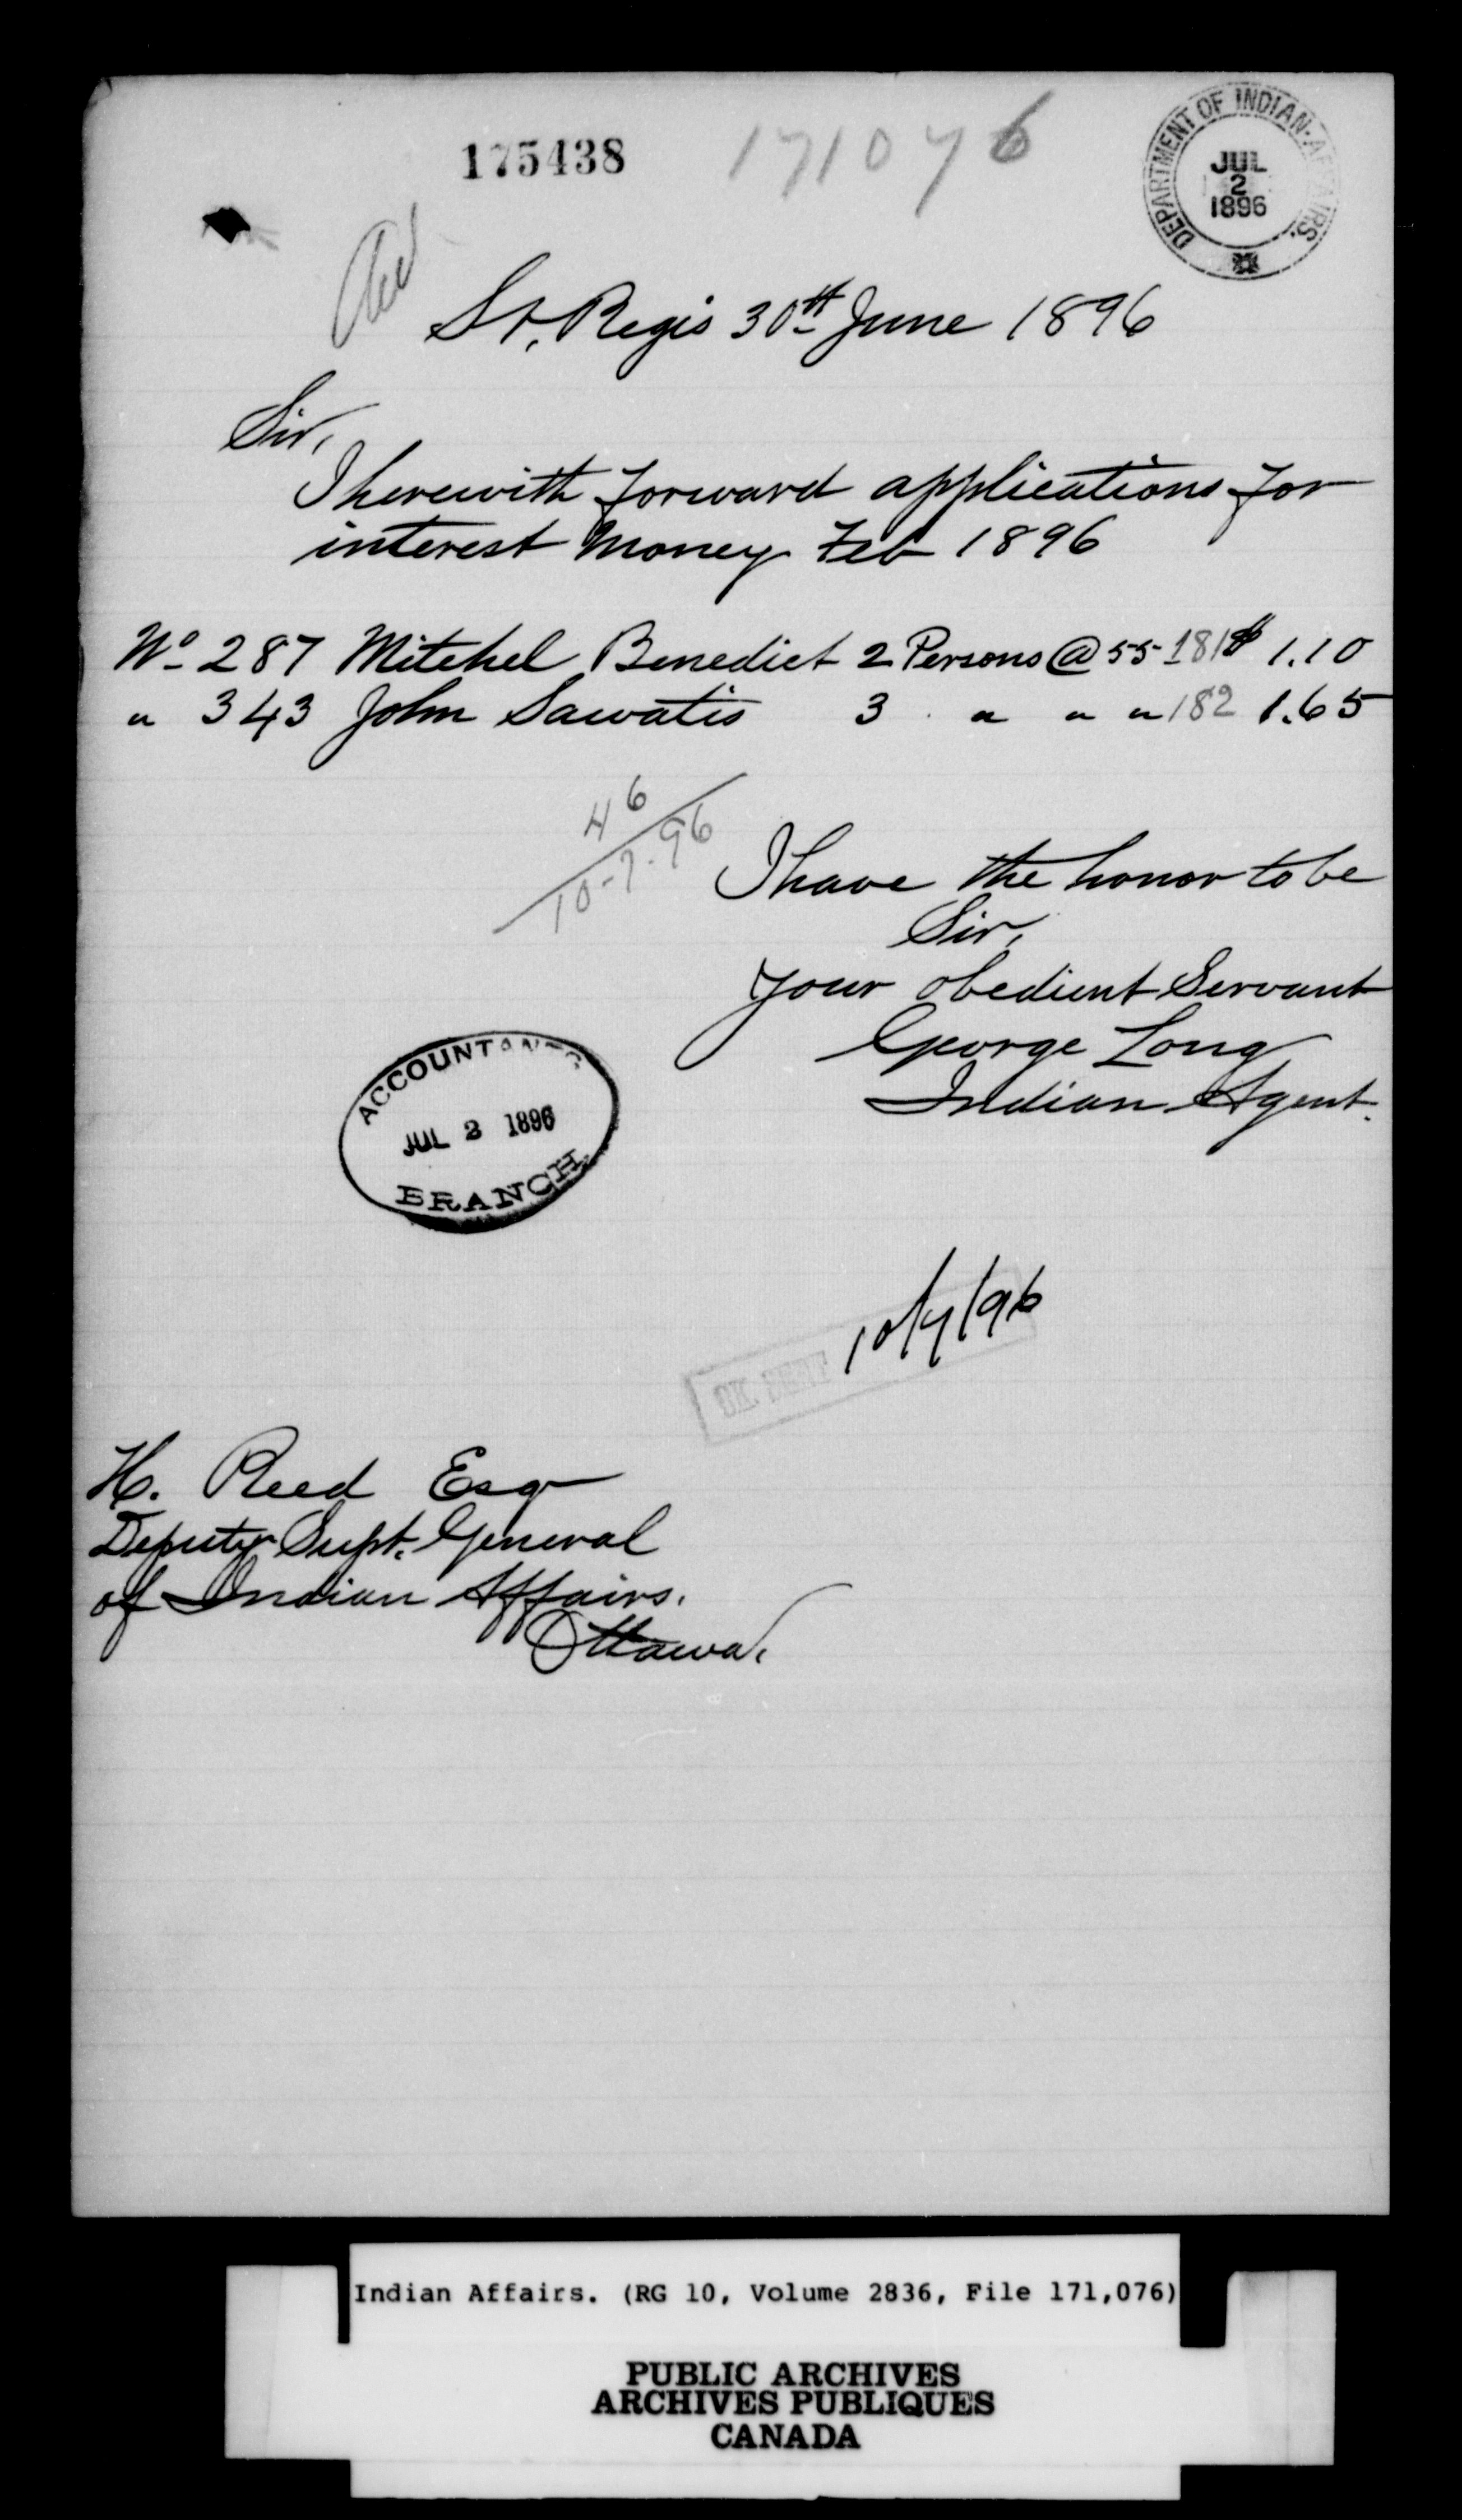 175438
171076
DEPARTMENT OF INDIAN AFFAIRS.
JUL
2
1896
St. Regis 30th June 1896
Sir,
I herewith forward applications for
interest Money Feb 1896
No 287 Mitchel Benedict 2 Persons @ 55 181 $ 1.10
" 343 John Sawatis 3 " " " 182 1.65
46
10-7-96
I have the honor to be
Sir,
Your obedient Servant
George Long
Indian Agent.
ACCOUNTANT'S
JUL 2 1896
BRANCH
10/7/96
H. Reed Esq
Deputy Supt. General
of Indian Affairs.
Ottawa.
Indian Affairs. (RG 10, Volume 2836, File 171,076)
PUBLIC ARCHIVES
ARCHIVES PUBLIQUES
CANADA